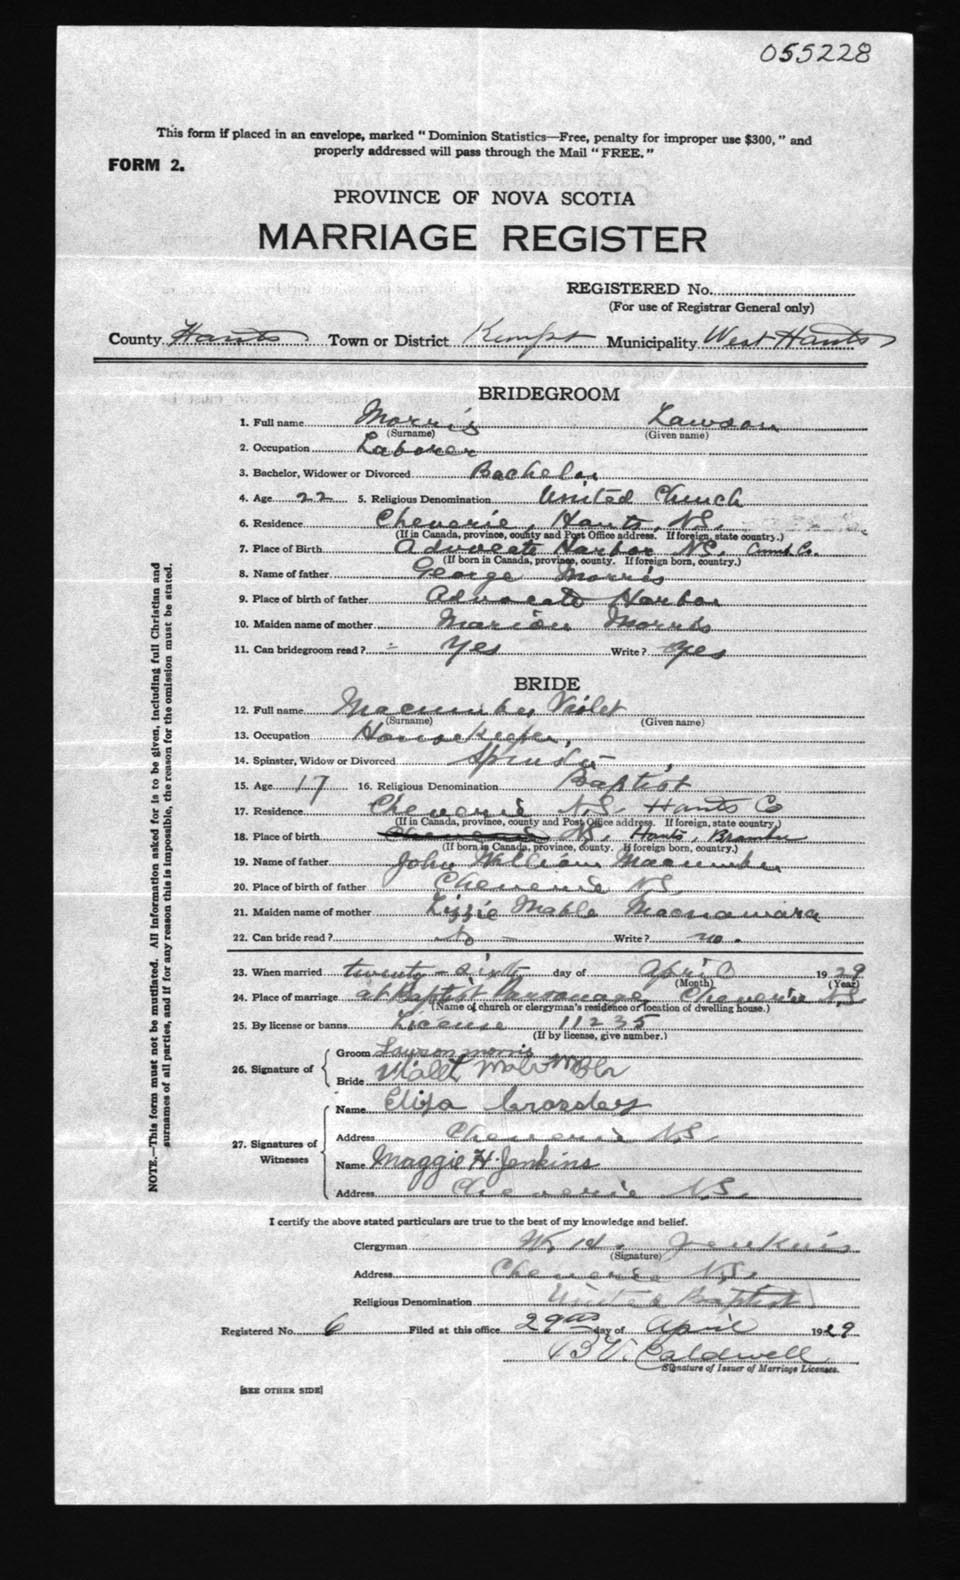 055228
This form if placed in an envelope, marked "Dominion Statistics—Free, penalty for improper use $300," and
properly addressed will pass through the Mail "FREE."
FORM 2.
PROVINCE OF NOVA SCOTIA
MARRIAGE REGISTER
REGISTERED No.
(For use of Registrar General only)
County Hants Town or District Kempt Municipality West Hants
BRIDEGROOM
1. Full name Morris Lawson
(Surname) (Given name)
2. Occupation Laborer
3. Bachelor, Widower or Divorced Bachelor
4. Age 22 5. Religious Denomination United Church
6. Residence Cheverie, Hants, N.S.
(If in Canada, province, county and Post Office address. If foreign, state country.)
7. Place of Birth Advocate Harbor N.S. Cumb Co.
(If born in Canada, province, county. If foreign born, country.)
8. Name of father George Morris
9. Place of birth of father Advocate Harbor
10. Maiden name of mother Marion Morris
11. Can bridegroom read? Yes Write? Yes
BRIDE
12. Full name Macumber Violet
(Surname) (Given name)
13. Occupation Housekeeper,
14. Spinster, Widow or Divorced Spinster
15. Age 17 16. Religious Denomination Baptist
17. Residence Cheverie N.S. Hants Co
(If in Canada, province, county and Post Office address. If foreign, state country.)
18. Place of birth Cheverie N.S. Hants,
(If born in Canada, province, county. If foreign born, country.)
19. Name of father John William Macumber
20. Place of birth of father Cheverie N.S.
21. Maiden name of mother Lizzie Mable Macnamara
22. Can bride read? No Write? no.
23. When married twenty-sixth day of April 1929
(Month) (Year)
24. Place of marriage at Baptist Parsonage, Cheverie N.S
(Name of church or clergyman's residence or location of dwelling house.)
25. By license or banns License 11235
(If by license, give number.)
26. Signature of
Groom Lawson morris
Bride Vialet
27. Signatures of Witnesses
Name Eliza Crossley
Address Cheverie N.S.
Name Maggie H. Jenkins
Address Cheverie N.S.
I certify the above stated particulars are true to the best of my knowledge and belief.
Clergyman W. H. Jenkins
(Signature)
Address Cheverie N.S.
Religious Denomination United Baptist
Registered No. 6 Filed at this office 29 day of April 1929
Caldwell
Signature of Issuer of Marriage Licenses.
[SEE OTHER SIDE]
NOTE.—This form must not be mutilated. All information asked for is to be given, including full Christian and
surnames of all parties, and if for any reason this is impossible, the reason for the omission must be stated.